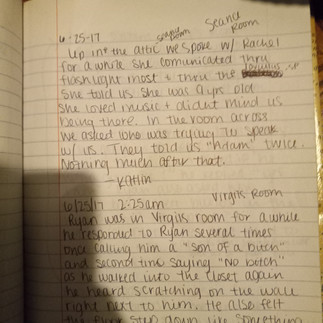 6-25-17 seance room Seance Room
Up in the attic we spoke w/ Rachel
for a while she comunicated thru
flashlight most & thru the
She told us she was 9 yrs old
She loved music & didnt mind us
being there. In the room across
we asked who was trying to speak
w/ us. They told us "Adam" twice.
Nothing much after that.
- Katlin
6/25/17 2:25am Virgils Room
Ryan was in Virgils room for a while
he responded to Ryan several times
once calling him a "son of a bitch"
and second time saying "No bitch"
as he walked into the closet again
he heard scratching on the wall
right next to him. He also felt
the floor step down like something